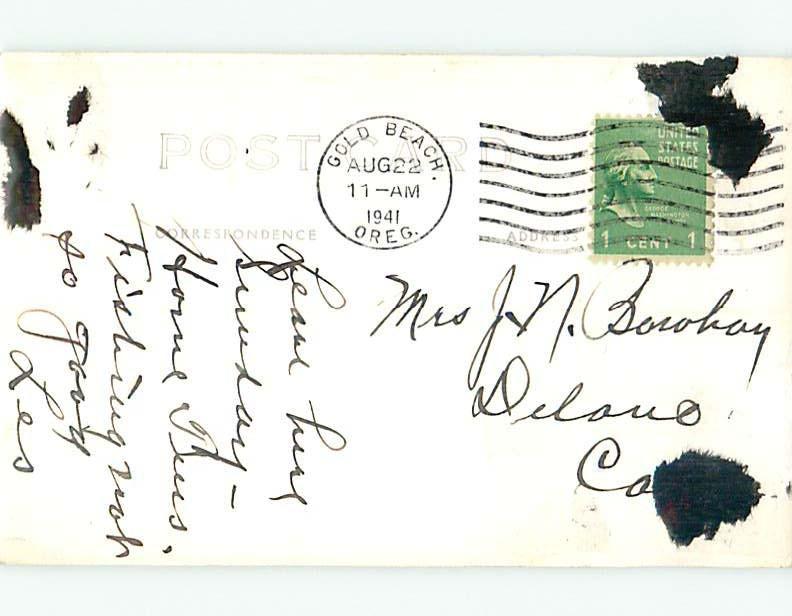 POST CARD
GOLD BEACH.
AUG 22
11-AM
1941
OREG.
UNITED
STATES
POSTAGE
GEORGE
WASHINGTON
1 CENT 1
CORRESPONDENCE
ADDRESS
Leave here
Sunday –
Home Thurs.
Fishing not
so good
Les
Mrs J. N.
Delano